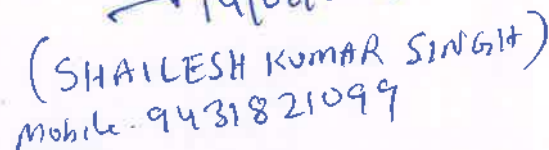 (SHAILESH KUMAR SINGH)
Mobile-9431821099